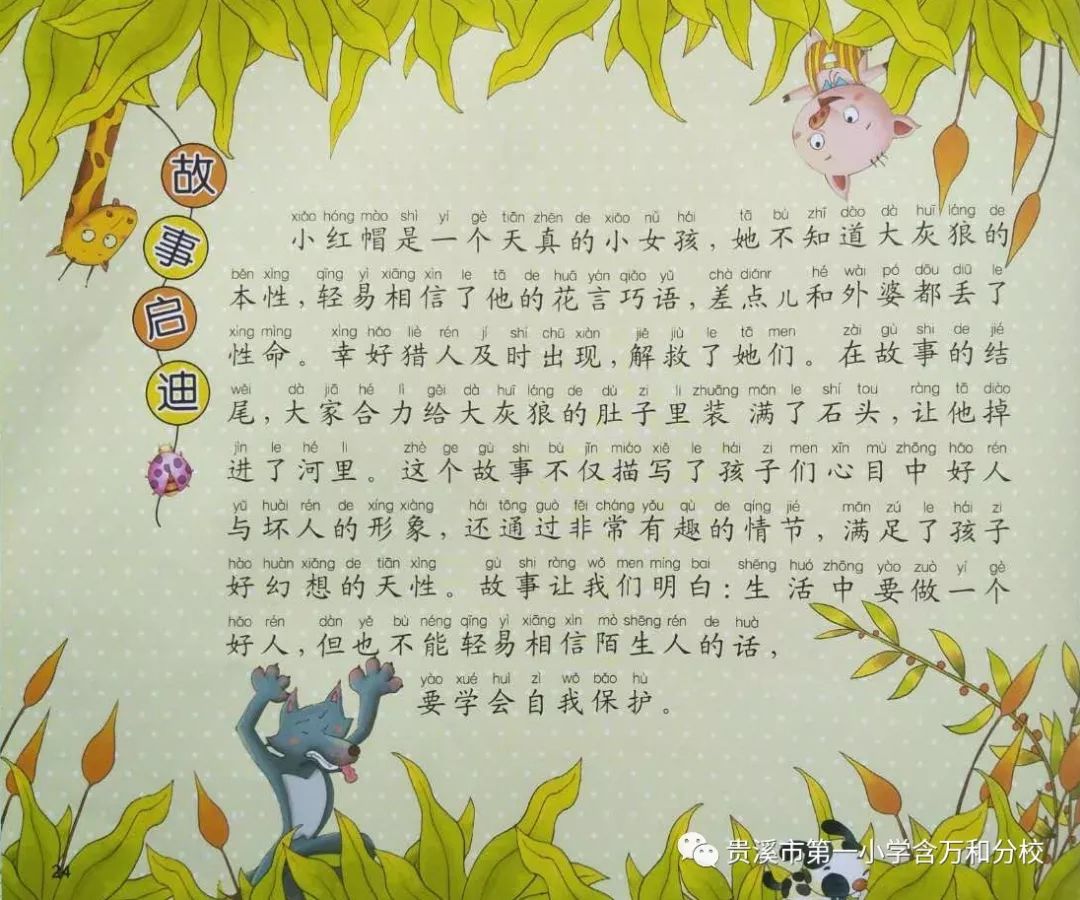 故事启迪
xiǎo hóng mào shì yí gè tiān zhēn de xiǎo nǚ hái tā bù zhī dào dà huī láng de
小红帽是一个天真的小女孩，她不知道大灰狼的
běn xìng qīng yì xiāng xìn le tā de huā yán qiǎo yǔ chà diǎnr hé wài pó dōu diū le
本性，轻易相信了他的花言巧语，差点儿和外婆都丢了
xìng mìng xìng hǎo liè rén jí shí chū xiàn jiě jiù le tā men zài gù shi de jié
性命。幸好猎人及时出现，解救了她们。在故事的结
wěi dà jiā hé lì gěi dà huī láng de dù zi li zhuāng mǎn le shí tou ràng tā diào
尾，大家合力给大灰狼的肚子里装满了石头，让他掉
jìn le hé li zhè ge gù shi bù jǐn miáo xiě le hái zi men xīn mù zhōng hǎo rén
进了河里。这个故事不仅描写了孩子们心目中好人
yǔ huài rén de xíng xiàng hái tōng guò fēi cháng yǒu qù de qíng jié mǎn zú le hái zi
与坏人的形象，还通过非常有趣的情节，满足了孩子
hào huàn xiǎng de tiān xìng gù shi ràng wǒ men míng bai shēng huó zhōng yào zuò yí gè
好幻想的天性。故事让我们明白：生活中要做一个
hǎo rén dàn yě bù néng qīng yì xiāng xìn mò shēng rén de huà
好人，但也不能轻易相信陌生人的话，
yào xué huì zì wǒ bǎo hù
要学会自我保护。
24
贵溪市第一小学含万和分校